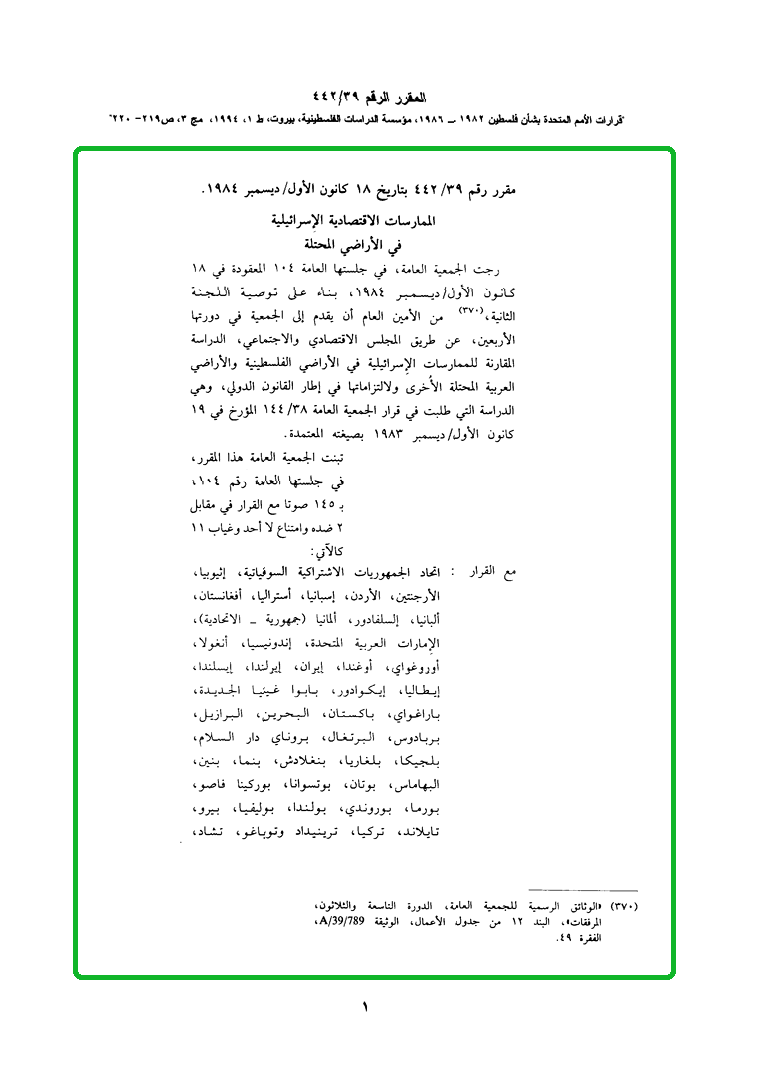 المقرر الرقم ٤٤٢/٣٩
"قرارات الأمم المتحدة بشأن فلسطين ١٩٨٢ ــ ١٩٨٦، مؤسسة الدراسات الفلسطينية، بيروت، ط ١، ١٩٩٤، مج ٣، ص٢١٩- ٢٢٠"
مقرر رقم ٤٤٢/٣٩ بتاريخ ١٨ كانون الأول/ديسمبر ١٩٨٤.
الممارسات الاقتصادية الإسرائيلية
في الأراضي المحتلة
رجت الجمعية العامة، في جلستها العامة ١٠٤ المعقودة في ١٨
كانون الأول/ديسمبر ١٩٨٤، بناء على توصية اللجنة
الثانية،(٣٧٠) من الأمين العام أن يقدم إلى الجمعية في دورتها
الأربعين، عن طريق المجلس الاقتصادي والاجتماعي، الدراسة
المقارنة للممارسات الإسرائيلية في الأراضي الفلسطينية والأراضي
العربية المحتلة الأخرى ولالتزاماتها في إطار القانون الدولي، وهي
الدراسة التي طلبت في قرار الجمعية العامة ١٤٤/٣٨ المؤرخ في ١٩
كانون الأول/ديسمبر ١٩٨٣ بصيغته المعتمدة.
تبنت الجمعية العامة هذا المقرر،
في جلستها العامة رقم ١٠٤،
بـ ١٤٥ صوتا مع القرار في مقابل
٢ ضده وامتناع لا أحد وغياب ١١
كالآتي:
مع القرار : اتحاد الجمهوريات الاشتراكية السوفياتية، إثيوبيا،
الأرجنتين، الأردن، إسبانيا، أستراليا، أفغانستان،
ألبانيا، إلسلفادور، ألمانيا (جمهورية ــ الاتحادية)،
الإمارات العربية المتحدة، إندونيسيا، أنغولا،
أوروغواي، أوغندا، إيران، إيرلندا، إيسلندا،
إيطاليا، إيكوادور، بابوا غينيا الجديدة،
باراغواي، باكستان، البحرين، البرازيل،
بربادوس، البرتغال، بروناي دار السلام،
بلجيكا، بلغاريا، بنغلادش، بنما، بنين،
البهاماس، بوتان، بوتسوانا، بوركينا فاصو،
بورما، بوروندي، بولندا، بوليفيا، بيرو،
تايلاند، تركيا، ترينيداد وتوباغو، تشاد،
(٣٧٠) «الوثائق الرسمية للجمعية العامة، الدورة التاسعة والثلاثون،
المرفقات»، البند ١٢ من جدول الأعمال، الوثيقة A/39/789،
الفقرة ٤٩.
١